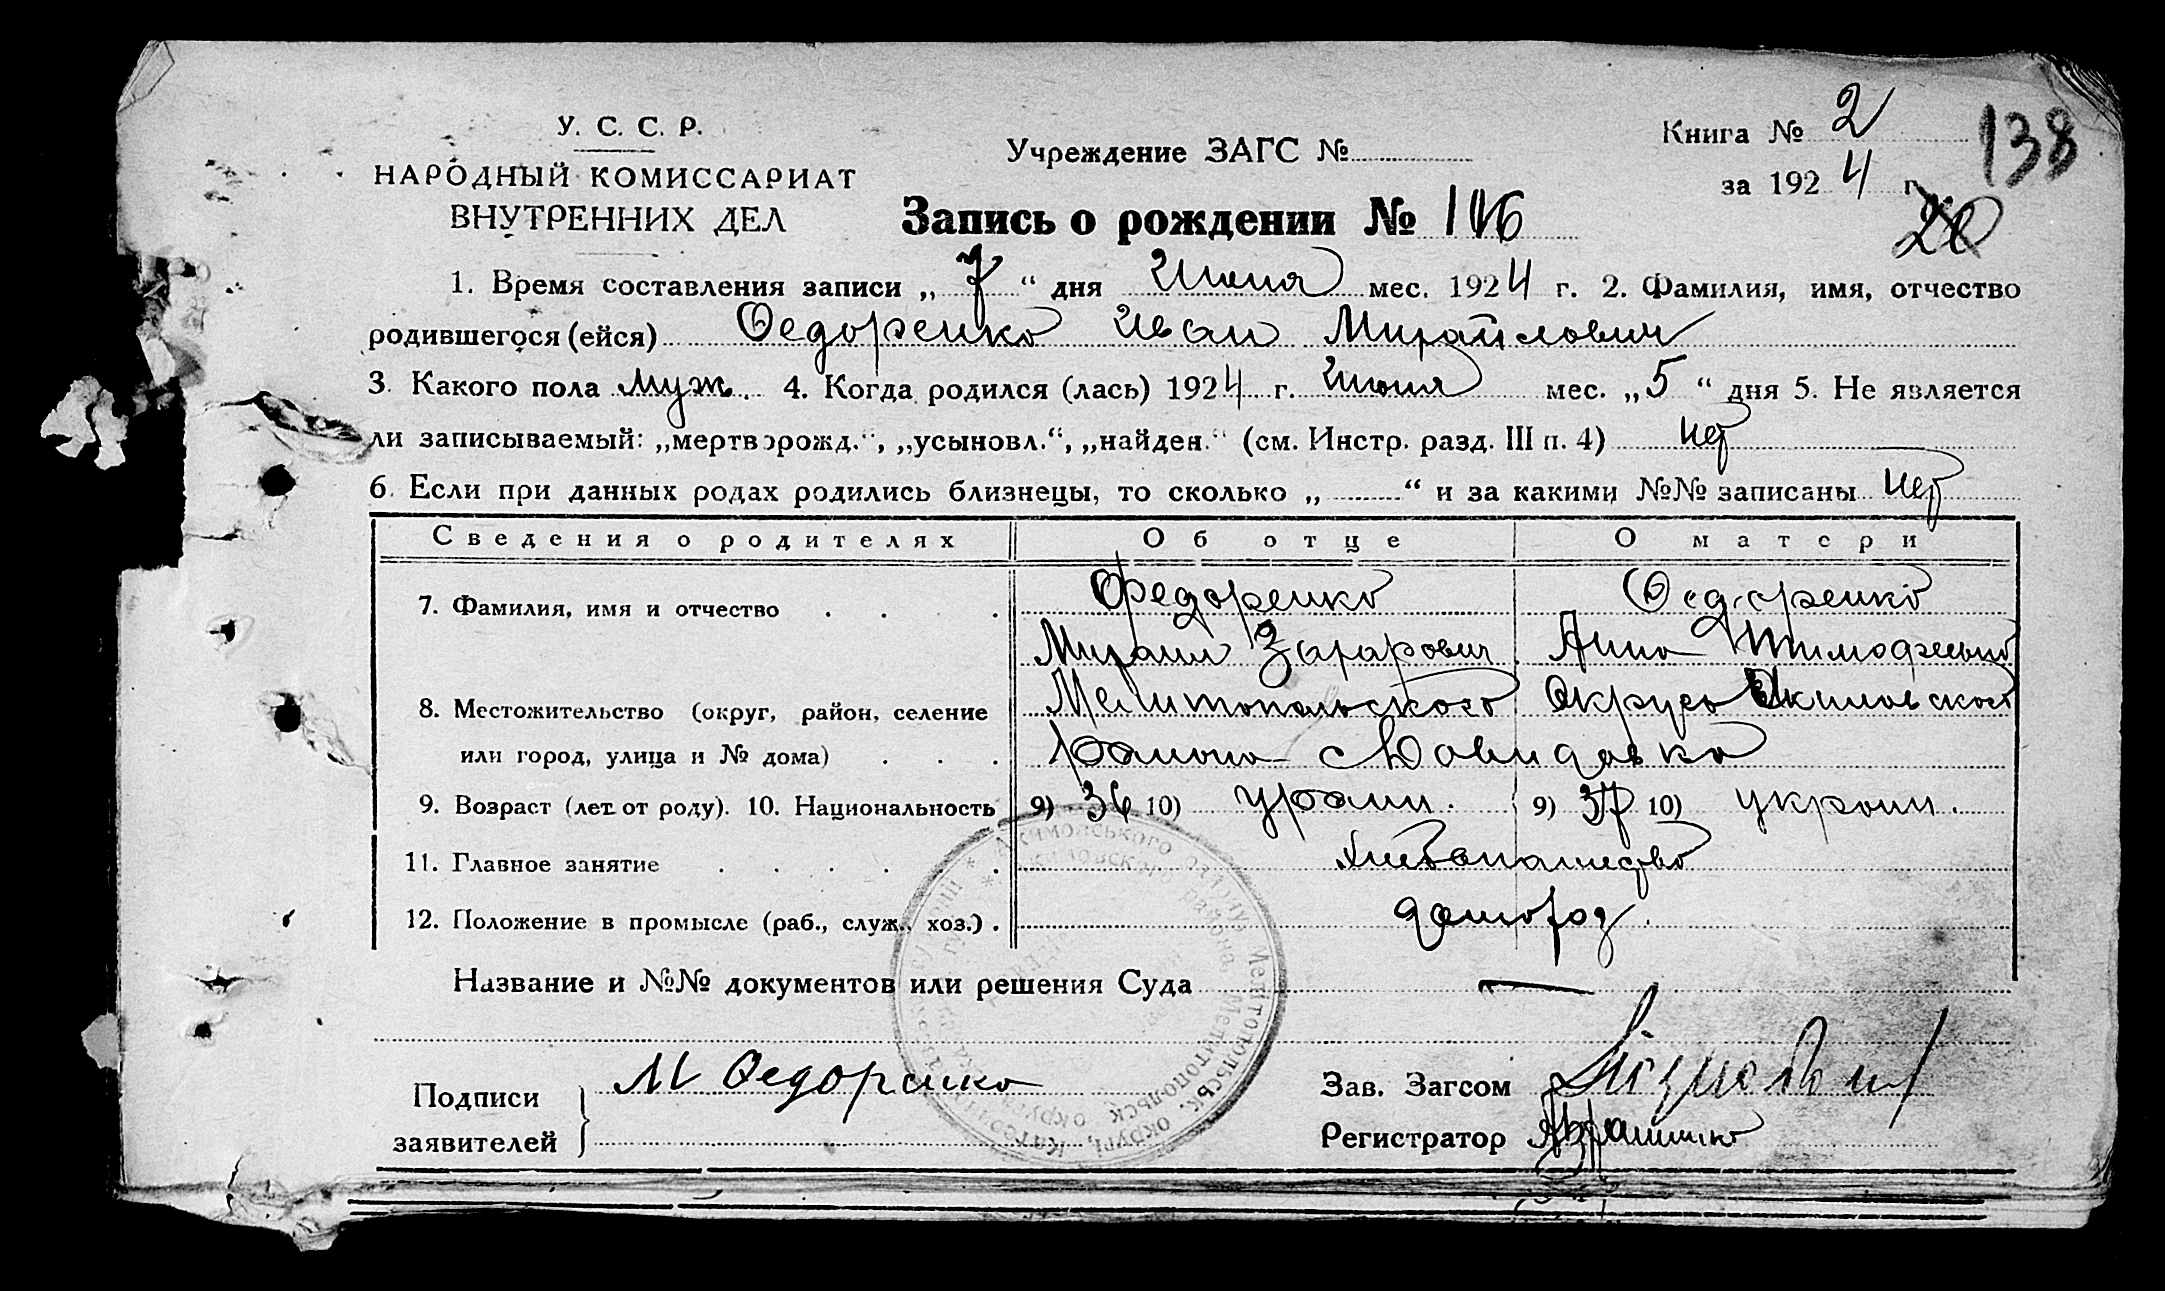 У. С. С. Р.
НАРОДНЫЙ КОМИССАРИАТ
ВНУТРЕННИХ ДЕЛ
Учреждение ЗАГС №
Книга № 2
за 1924 г.
138
20
Запись о рождении № 116
1. Время составления записи „ 7 “ дня Июня мес. 1924 г. 2. Фамилия, имя, отчество
родившегося (ейся) Федоренко Иван Михайлович
3. Какого пола муж. 4. Когда родился (лась) 1924 г. Июня мес. „ 5 “ дня 5. Не является
ли записываемый: „мертворожд.“, „усыновл.“, „найден.“ (см. Инстр. разд. III п. 4) нет
6. Если при данных родах родились близнецы, то сколько „ “ и за какими №№ записаны нет
Сведения о родителях Об отце О матери
7. Фамилия, имя и отчество Федоренко Федоренко
Михаил Захарович Анна Тимофеевна
8. Местожительство (округ, район, селение Мелитопольского Округа Акимовского
или город, улица и № дома) района с Давидовка
9. Возраст (лет от роду). 10. Национальность 9) 36 10) украин. 9) 37 10) украин.
11. Главное занятие Хлебопашество
12. Положение в промысле (раб., служ., хоз.)
Название и №№ документов или решения Суда —
Подписи М Федоренко
заявителей
Зав. Загсом
Регистратор